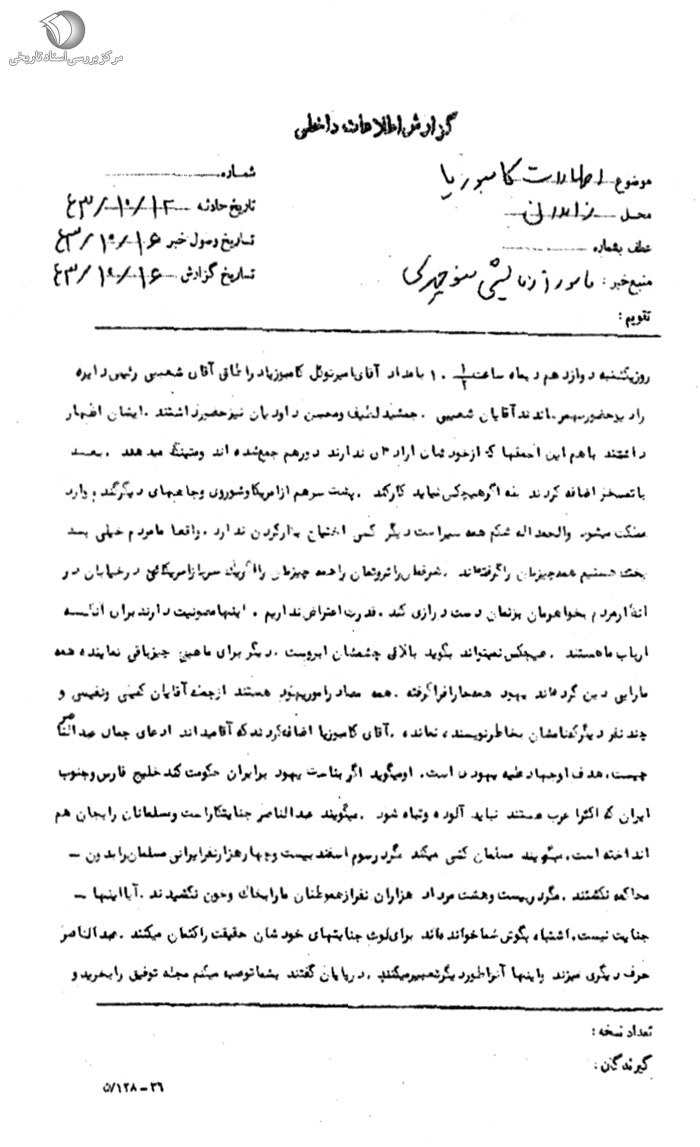 مرکز بررسی اسناد تاریخی
گزارش اطلاعات داخلی
موضوع اظهارات کامبوزیا
محل زاهدان
عطف بشماره
منبع خبر : مامور آزمایشی منوچهری
تقویم :
شماره
تاریخ حادثه ۴۳/۱۰/۱۲
تاریخ وصول خبر ۴۳/۱۰/۱۶
تاریخ گزارش ۴۳/۱۰/۱۶
روز یکشنبه دوازدهم دیماه ساعت ۱۰ ۱/۲ بامداد آقای امیر توکل کامبوزیا در اطاق آقای شعیبی رئیس دایره
آقایان شعیبی . جمشید لطیف و محسن داودیان نیز حضور داشتند . ایشان اظهار
داشتند باهم این احمقها که از خودشان اراده ای ندارند دورهم جمع شده اند و میتینگ میدهند . بعد
با تمسخر اضافه کردند بله اگر هیچکس نباید کار کند . پشت سرهم از امریکا و شوروی و جاهای دیگر گندم وارد
مملکت میشود والحمداله شکم همه سیر است دیگر کسی احتیاج بکار کردن ندارد . واقعا ما مردم خیلی بد
بخت هستیم همه چیزمان را گرفته اند . شرفمان را ثروتمان را همه چیزمان را اگر یک سرباز امریکائی در خیابان در
انظار مردم بخواهرمان بزنمان دست درازی کند . قدرت اعتراض نداریم . اینها مصونیت دارند برای آنکه
ارباب ما هستند . هیچکس نمیتواند بگوید بالای چشمشان ابروست . دیگر برای ما هیچ چیز باقی نمانده همه
ما را بی دین کرده اند یهود همه جا را فرا گرفته . همه مصادر امور یهود هستند از جمله آقایان و نفیسی و
چند نفر دیگر که نامشان بخاطر نویسنده نمانده . آقای کامبوزیا اضافه کردند که آقا میداند ادعای جمال عبدالناصر
چیست . هدف او جهاد علیه یهود است . او میگوید اگر بناست یهود بر ایران حکومت کند خلیج فارس و جنوب
ایران که اکثرا عرب هستند نباید آلوده و تباه شود . میگویند عبدالناصر جنایتکار است و مسلمانان را بجان هم
انداخته است . میگویند مسلمان کشی میکند مگر در سوم اسفند بیست و چهار هزار نفر ایرانی مسلمان را بدون –
محاکمه نکشتند . مگر در بیست و هشت مرداد هزاران نفر از هموطنان ما را بخاک و خون نکشیدند . آیا اینها –
جنایت نیست . اشتباه بگوش شما خوانده اند برای لوث جنایتهای خودشان حقیقت را کتمان میکنند . عبدالناصر
حرف دیگری میزند و اینها آنرا طور دیگر تعبیر میکنند . در پایان گفتند بشما توصیه میکنم مجله توفیق را بخرید و
تعداد نسخه :
گیرندگان :
۵/۱۲۸-۳۶